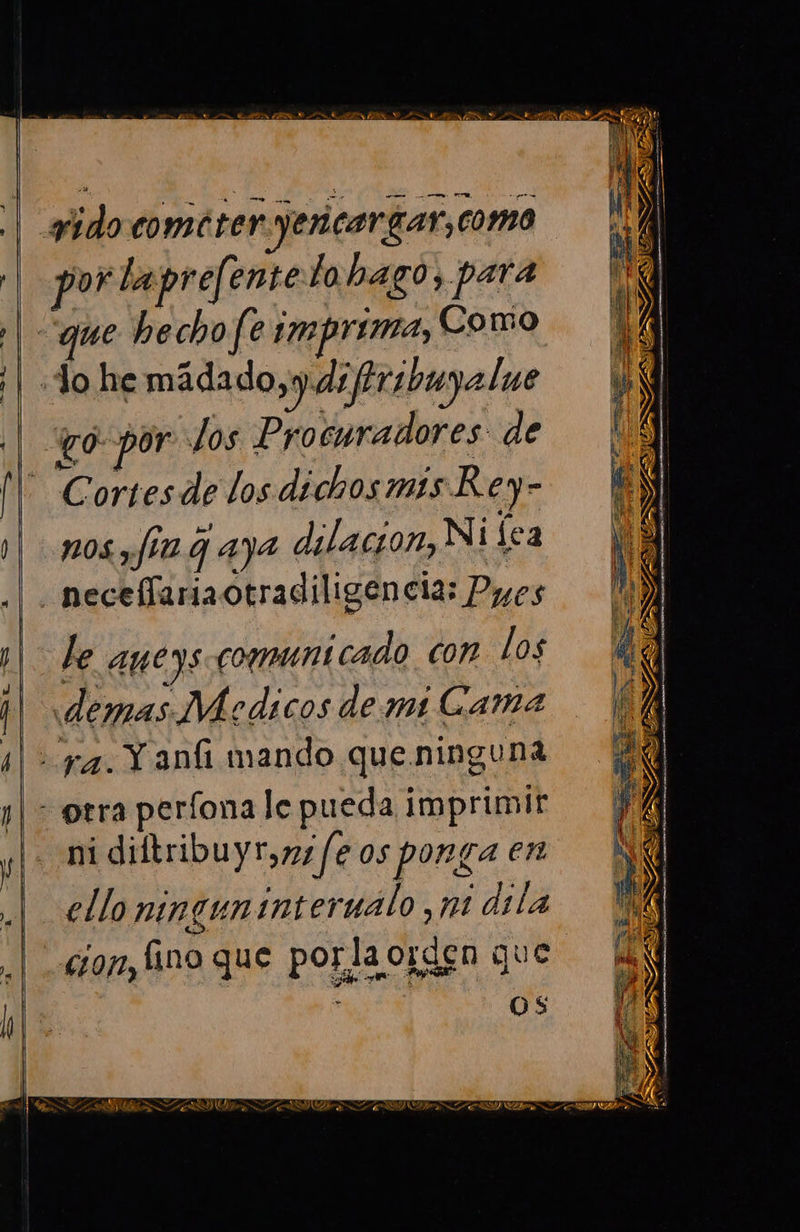 rido cometer yencargar,como
por lapreſente lo hago, para
que hecho ſe imprima, Como
lo he mãdado,y diſtribuyalue
go por los Procuradores de
Cortes de los dichos mis Rey-
nos,ſin q̃ aya dilacion, Ni ſea
neceſſariaotradiligencia: Pues
le aueys comunicado con los
demas Medicos de mi Cama
ra. Y anſi mando que ninguna
otra perſona le pueda imprimir
ni diſtribuyr,ni ſe os ponga en
ello ningun interualo, ni dila
cion, ſino que por la orden que
os